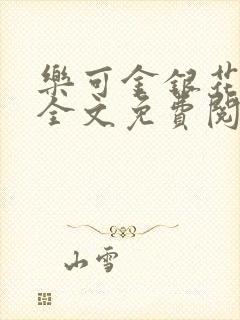 樂可金銀花
全文免費閱
山雪